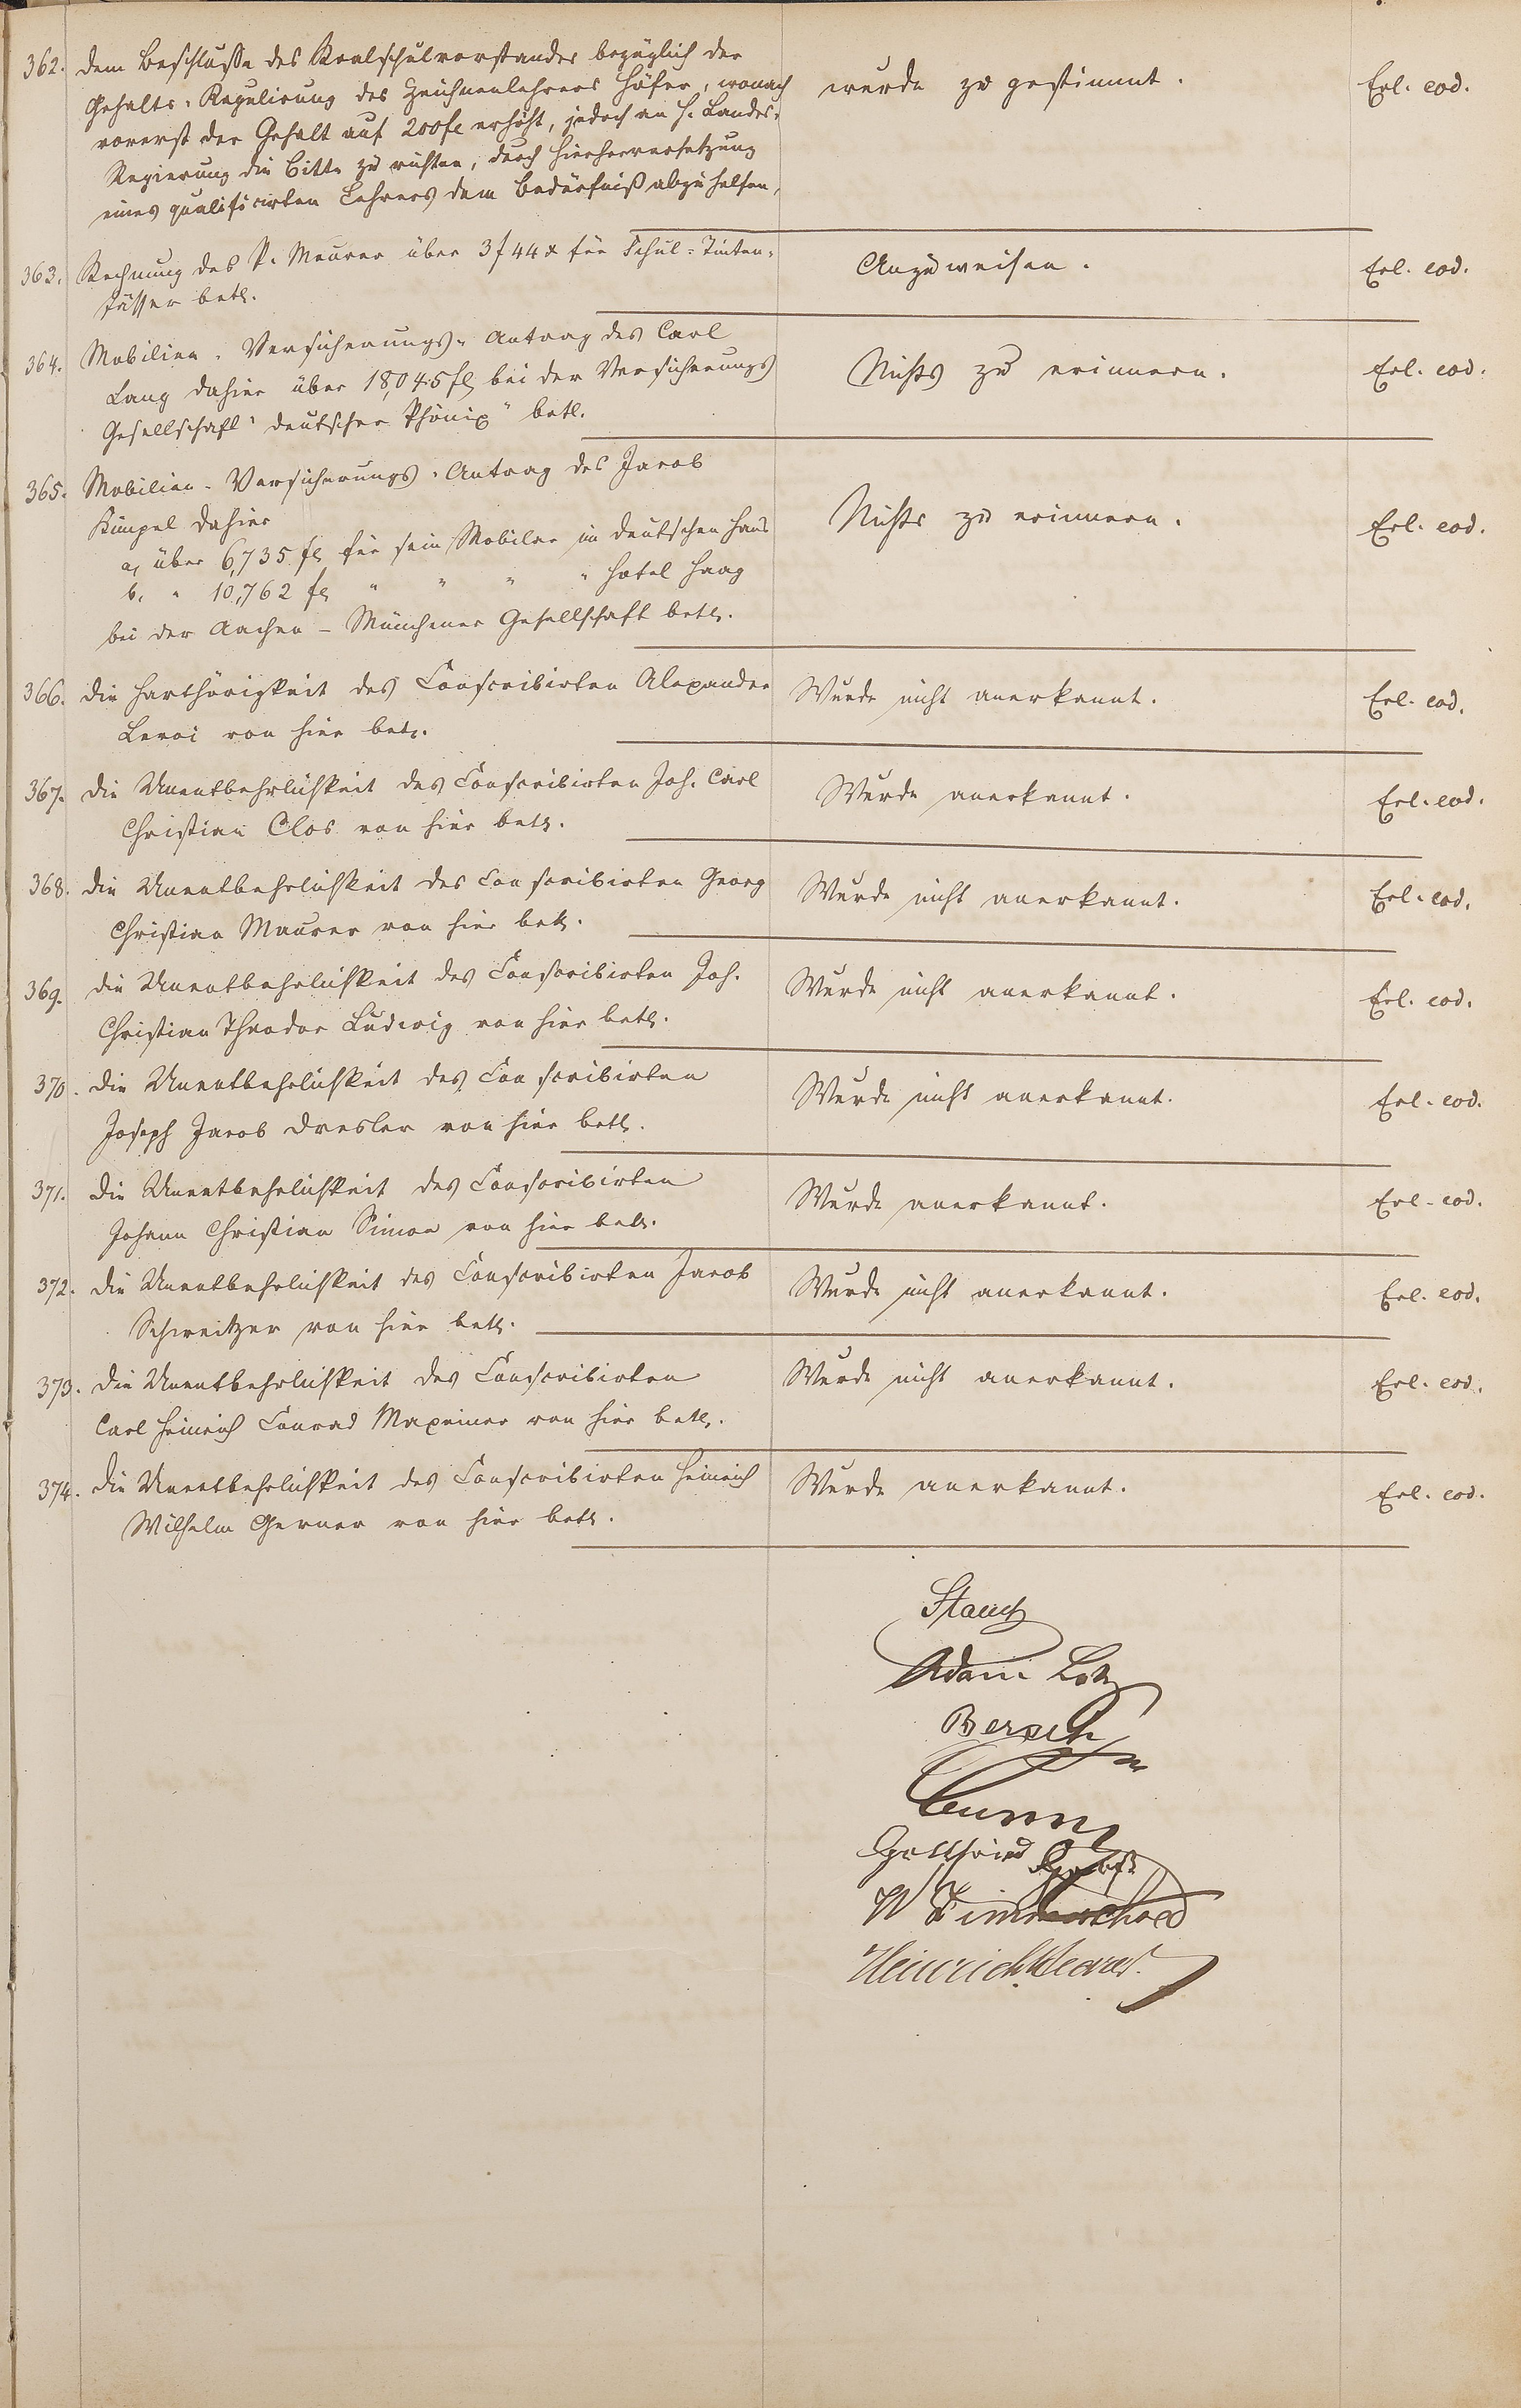 362. dem Beschlusse des Realschulvorstandes bezüglich der
Gehalts-Regulirung des Zeichnenlehrers Höfer, wonach
vorerst der Gehalt auf 200 fl erhöht, jedoch an H. Landes-
Regierung die Bitte zu richten, durch Hierherversetzung
eines qualificirten Lehrers dem Bedürfniß abzuhelfen,
wurde zu gestimmt.
Erl. eod.
363. Rechnung des P. Maurer über 3 f 44 x für Schul-Tinten-
fässer betr.
Anzuweisen.
Erl. eod.
364. Mobilien-Versicherungs-Antrag des Carl
Lang dahier über 18,045 fl bei der Versicherungs
Gesellschaft „deutscher Phönix" betr.
Nichts zu erinnern.
Erl. eod.
365. Mobilien-Versicherungs-Antrag des Jacob
Kimpel dahier
a, über 6,735 fl für sein Mobilar im deutschen Haus
b. " 10,762 fl " " " " Hotel Haag
bei der Aachen-Münchener Gesellschaft betr.
Nichts zu erinnern.
Erl. eod.
366. die Harthörigkeit des Conscribirten Alexander
Leroi von hier betr.
Wurde nicht anerkannt.
Erl. eod.
367. die Unentbehrlichkeit des Conscribirten Joh. Carl
Christian Clos von hier betr.
Wurde anerkannt.
Erl. eod.
368. die Unentbehrlichkeit des Conscribirten Georg
Christian Maurer von hier betr.
Wurde nicht anerkannt.
Erl. eod.
369. die Unentbehrlichkeit des Conscribirten Joh.
Christian Theodor Ludwig von hier betr.
Wurde nicht anerkannt.
Erl. eod.
370. die Unentbehrlichkeit des Conscribirten
Joseph Jacob Dresler von hier betr.
Wurde nicht anerkannt.
Erl. eod.
371. die Unentbehrlichkeit des Conscribirten
Johann Christian Simon von hier betr.
Wurde anerkannt.
Erl. eod.
372. die Unentbehrlichkeit des Conscribirten Jacob
Schweitzer von hier betr.
Wurde nicht anerkannt.
Erl. eod.
373. die Unentbehrlichkeit des Conscribirten
Carl Heinrich Conrad Maxeiner von hier betr.
Wurde nicht anerkannt.
Erl. eod.
374. die Unentbehrlichkeit des Conscribirten Heinrich
Wilhelm Gerner von hier betr.
Wurde anerkannt.
Erl. eod.
Stauch
Adam Lotz
Bersch
Gottfried
W Zimmerschied
Heinrich